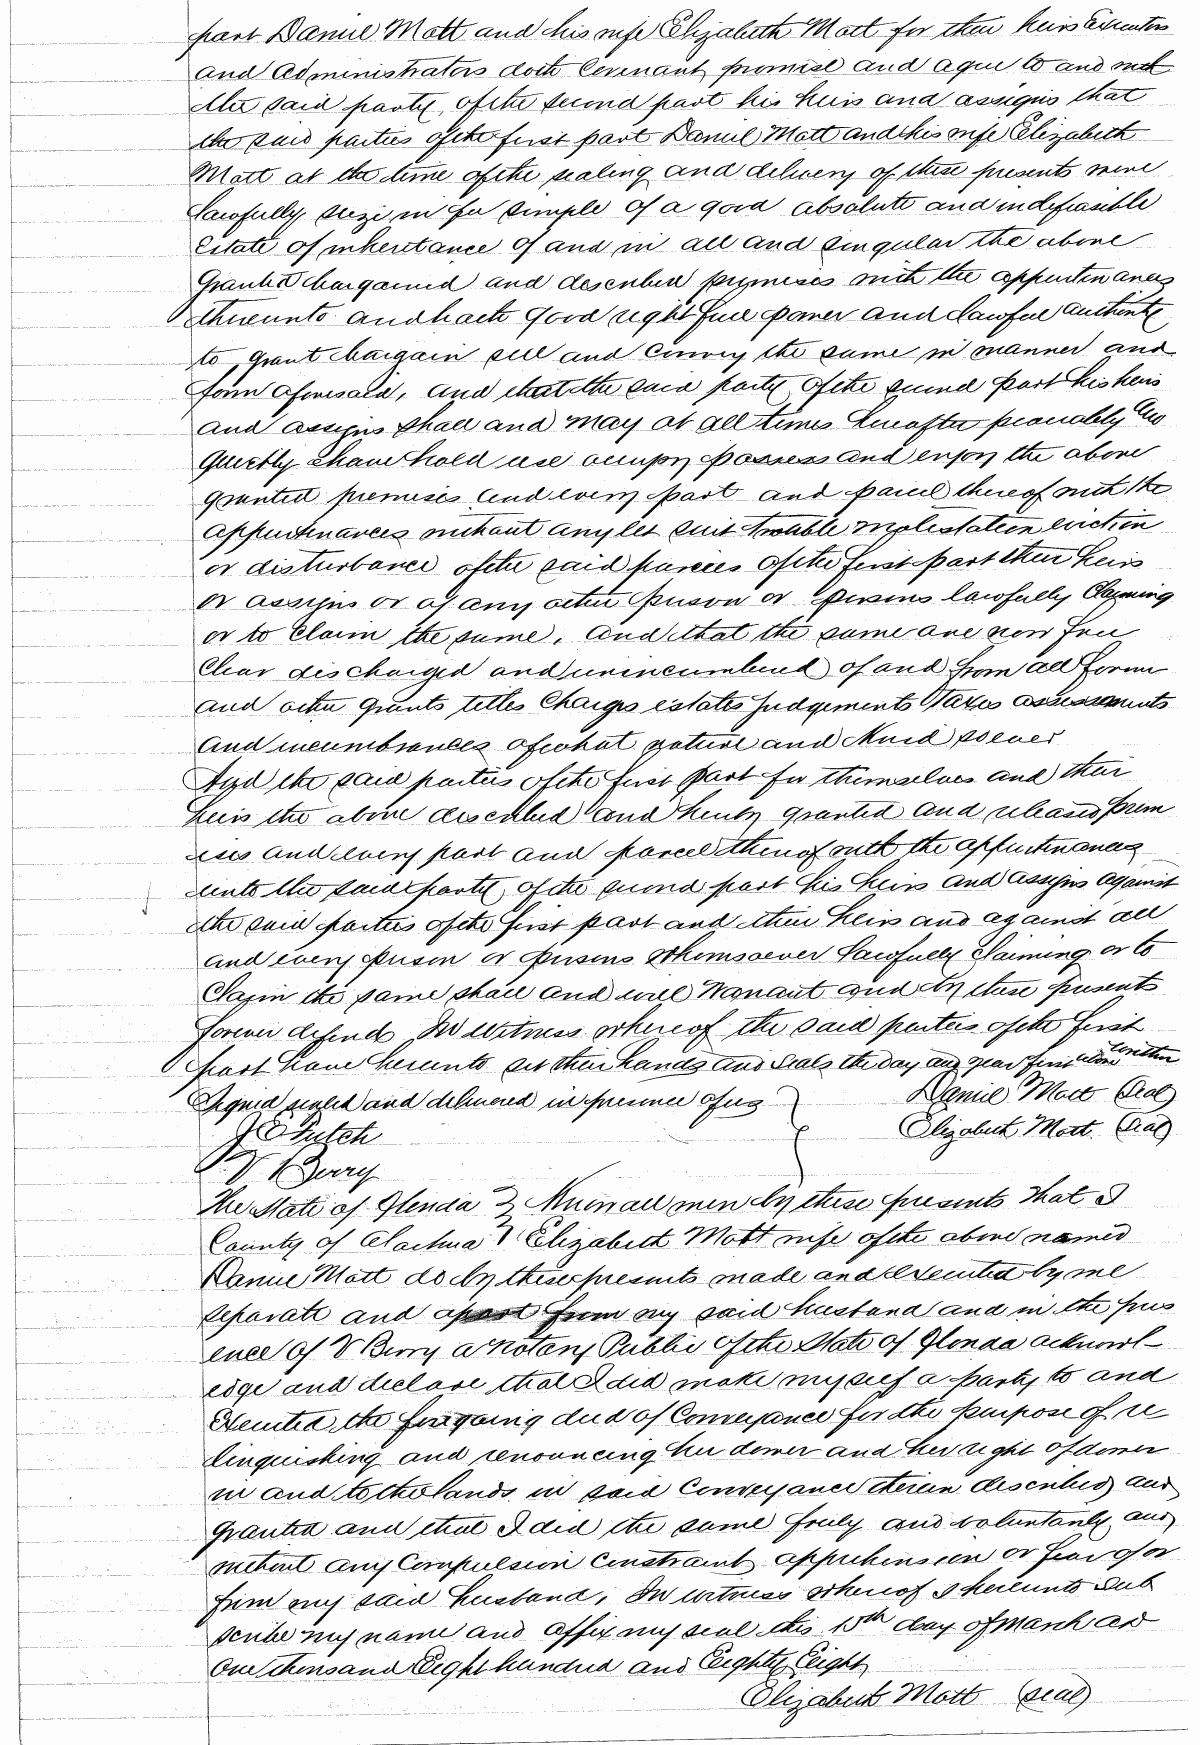 part Daniel Mott and his wife Elizabeth Mott for their heirs Executors
and Administrators doth Covenant promise and agree to and with
the said party of the second part his heirs and assigns that
the said parties of the first part Daniel Mott and his wife Elizabeth
Mott at the time of the sealing and delivery of these presents were
lawfully seize in fee simple of a good absolute and indefeasible
Estate of inheritance of and in all and singular the above
granted bargained and described premises with the appurtinances
thereunto and hath good right full power and lawful authority
to grant bargain sell and convey the same in manner and
form aforesaid, and that the said party of the second part his heirs
and assigns shall and may at all times hereafter peacably and
quietly have hold use occupy possess and enjoy the above
granted premises and every part and parcel thereof with the
appurtenances without any let suit trouble molestation eviction
or disturbance of the said parties of the first part their heirs
or assigns or of any other person or persons lawfully claiming
or to claim the same, and that the same are now free
clear discharged and unincumbered of and from all former
and other grants titles charges estates judgements taxes assessments
and incumbrances of what nature and kind soever
And the said parties of the first part for themselves and their
heirs the above described and hereby granted and released prem
ises and every part and parcel thereof with the appurtinances
unto the said party of the second part his heirs and assigns against
the said parties of the first part and their heirs and against all
and every person or persons whomsoever lawfully claiming or to
claim the same shall and will warrant and by these presents
forever defend In witness whereof the said parties of the first
part have hereunto set their hands and seals the day and year first above written
Signed sealed and delivered in presence of us } Daniel Mott (seal)
J C Futch Elizabeth Mott (seal)
V Berry
The State of Florida } Know all men by these presents that I
County of Alachua } Elizabeth Mott wife of the above named
Daniel Mott do by these presents made and executed by me
separate and apart from my said husband and in the pres
ence of V Berry a Notary Public of the State of Florida acknowl-
edge and declare that I did make myself a party to and
Executed the foregoing deed of Conveyance for the purpose of re
linquishing and renouncing her dower and her right of dower
in and to the lands in said Conveyance therein described and
granted and that I did the same freely and voluntarily and
without any Compulsion constraint apprehension or fear of or
from my said husband, In witness whereof I hereunto sub
scribe my name and affix my seal this 15th day of March AD
One thousand Eight hundred and Eighty Eight
Elizabeth Mott (seal)